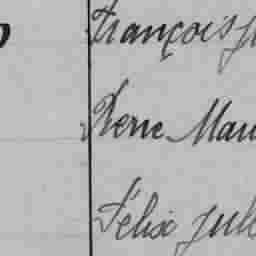 François
Pierre Mau
Félix Jul